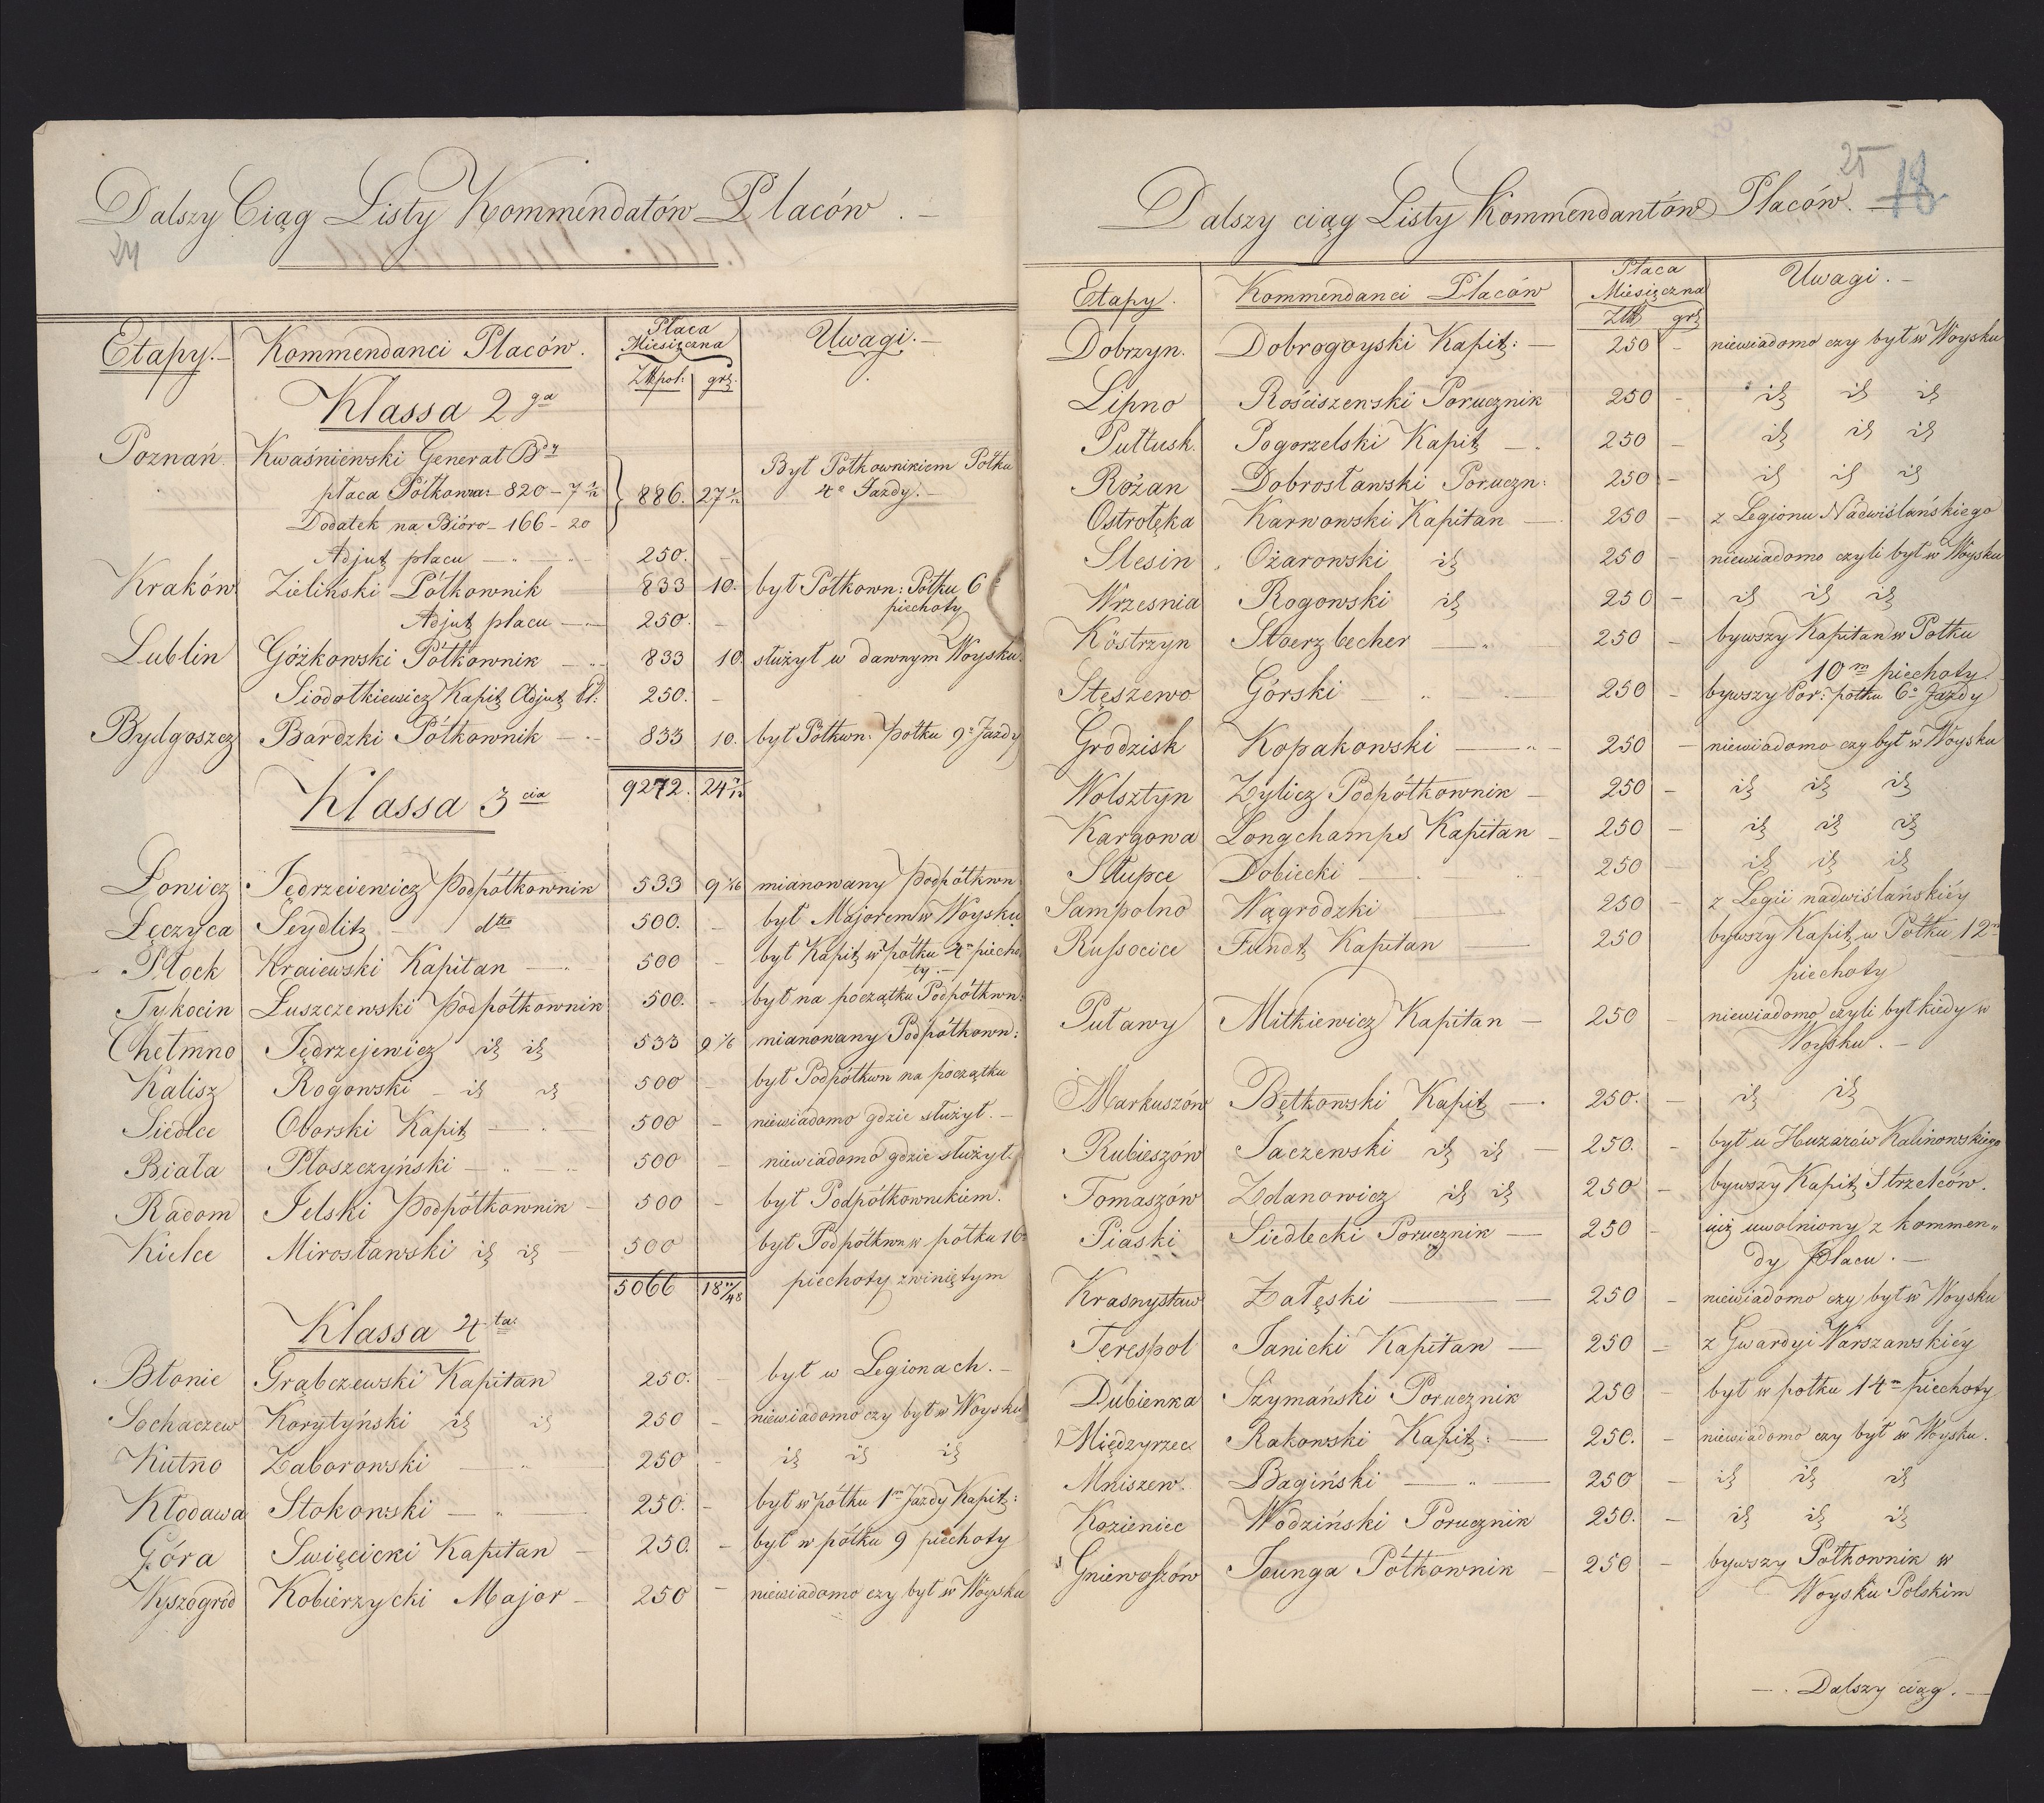 Dalszy Ciąg Listy Kommendatów Placów. —
24
Etapy. — Kommendanci Placów. Płaca Miesięczna Złł pol: grz. Uwagi. —
Klassa 2ga
Poznań Kwaśniewski Generał Bdy
płaca Półkown: 820 - 7 1/12 886. 27 1/12 Był Półkownikiem Półku
4o Jazdy. —
Dodatek na Bióro - 166 - 20
Adjut placu — " — 250. —
Kraków Zieliński Półkownik 833 10. był Półkown: Półku 6o
piechoty
Adjut placu — 250. —
Lublin Góżkowski Półkownik — 833 10. służył w dawnym Woysku.
Siodołkiewicz Kapit Adjut Pl: 250. —
Bydgoszcz Bardzki Półkownik — 833 10. był Półkwn: półku 9o Jazdy
9272. 24 7/12
Klassa 3cia
Łowicz Jędrzeiewicz Podpółkownik 533 9 1/16 mianowany Podpółkwn
Łęczyca Seydlitz — dtto 500. — był Majorem w Woysku
Płock Kraiewski Kapitan — 500 — był Kapit w półku 4m piecho
ty. —
Tykocin Łuszczewski Podpółkownik 500. — był na początku Podpółkwn:
Chełmno Jędrzejewicz id id 533 9 1/6 mianowany Podpółkown:
Kalisz Rogowski — id id 500 — był Podpółkwn na początku
Siedlce Oborski Kapit — 500 — niewiadomo gdzie służył. —
Biała Płoszczyński — " — 500 — niewiadomo gdzie służył.
Radom Jelski Podpółkownik — 500 — był Podpółkownikiem.
Kielce Mirosławski id id 500 był Podpółkwn w półku 16m
piechoty zwiniętym
5066 18 11/48
Klassa 4ta
Błonie Grąbczewski Kapitan 250. — był w Legionach. —
Sochaczew Korytyński id id 250 — niewiadomo czy był w Woysku
Kutno Zaborowski — " — 250 — id id id
Kłodawa Stokowski — " — 250. — był w półku 1m Jazdy Kapit:
Góra Swięcicki Kapitan — 250. — był w półku 9 piechoty
Wyszogród Kobierzycki Major — 250 — niewiadomo czy był w Woysku
25
18
Dalszy ciąg Listy Kommendantów Placów. —
Etapy. Kommendanci Placów Płaca Miesięczna Złł grz Uwagi. —
Dobrzyn. Dobrogoyski Kapit: — 250 — niewiadomo czy był w Woysku
Lipno Rościszewski Porucznik 250 — id id id
Pułtusk. Pogorzelski Kapit — 250 — id id id
Rożan Dobrosławski Poruczn: 250 — id id id
Ostrołęka Karwowski Kapitan — 250 — z Legionu Nadwiślańskiego
Slesin Ożarowski id 250 — niewiadomo czyli był w Woysku
Wrzesnia Rogowski id 250 — id id id
Köstrzyn Stoerzbecher — " 250 — bywszy Kapitan w Półku
10m piechoty
Stęszewo Górski — " — 250 — bywszy Por: półku 6o Jazdy
Grodzisk Kopakowski — " — 250 — niewiadomo czy był w Woysku
Wolsztyn Zylicz Podpółkownik — 250 — id id id
Kargowa Longchamps Kapitan — 250 — id id id
Słupce Dobiecki — 250 id id id
Sampolno Wągrodzki — 250 — z Legii nadwiślańskiéy
Russocice Fundt Kapitan — 250 bywszy Kapit w Półku 12m
piechoty
Puławy Mitkiewicz Kapitan — 250 — niewiadomo czyli był kiedy w
Woysku. —
Markuszów Bętkowski Kapit — 250. — id id
Rubieszów Saczewski id id — 250. — był u Huzarów Kalinowskiego
Tomaszów Zdanowicz id id 250 — bywszy Kapit Strzelców.
Piaski Siedlecki Porucznik — 250 — iuż uwolniony z kommen„
dy Placu. —
Krasnystaw Załęski — 250 — niewiadomo czy był w Woysku
Terespol Janicki Kapitan — 250 — z Gwardyi Warszawskiéy
Dubienka Szymański Porucznik 250 — był w półku 14m piechoty
Międzyrzec Rakowski Kapit: — 250. — niewiadomo czy był w Woysku.
Mniszew. Bagiński — " — 250 — id id id
Kozieniec Wodziński Porucznik 250. — id id id
Gniewoszów Jounga Półkownik — 250 — bywszy Półkownik w
Woysku Polskim
—. Dalszy ciąg. —